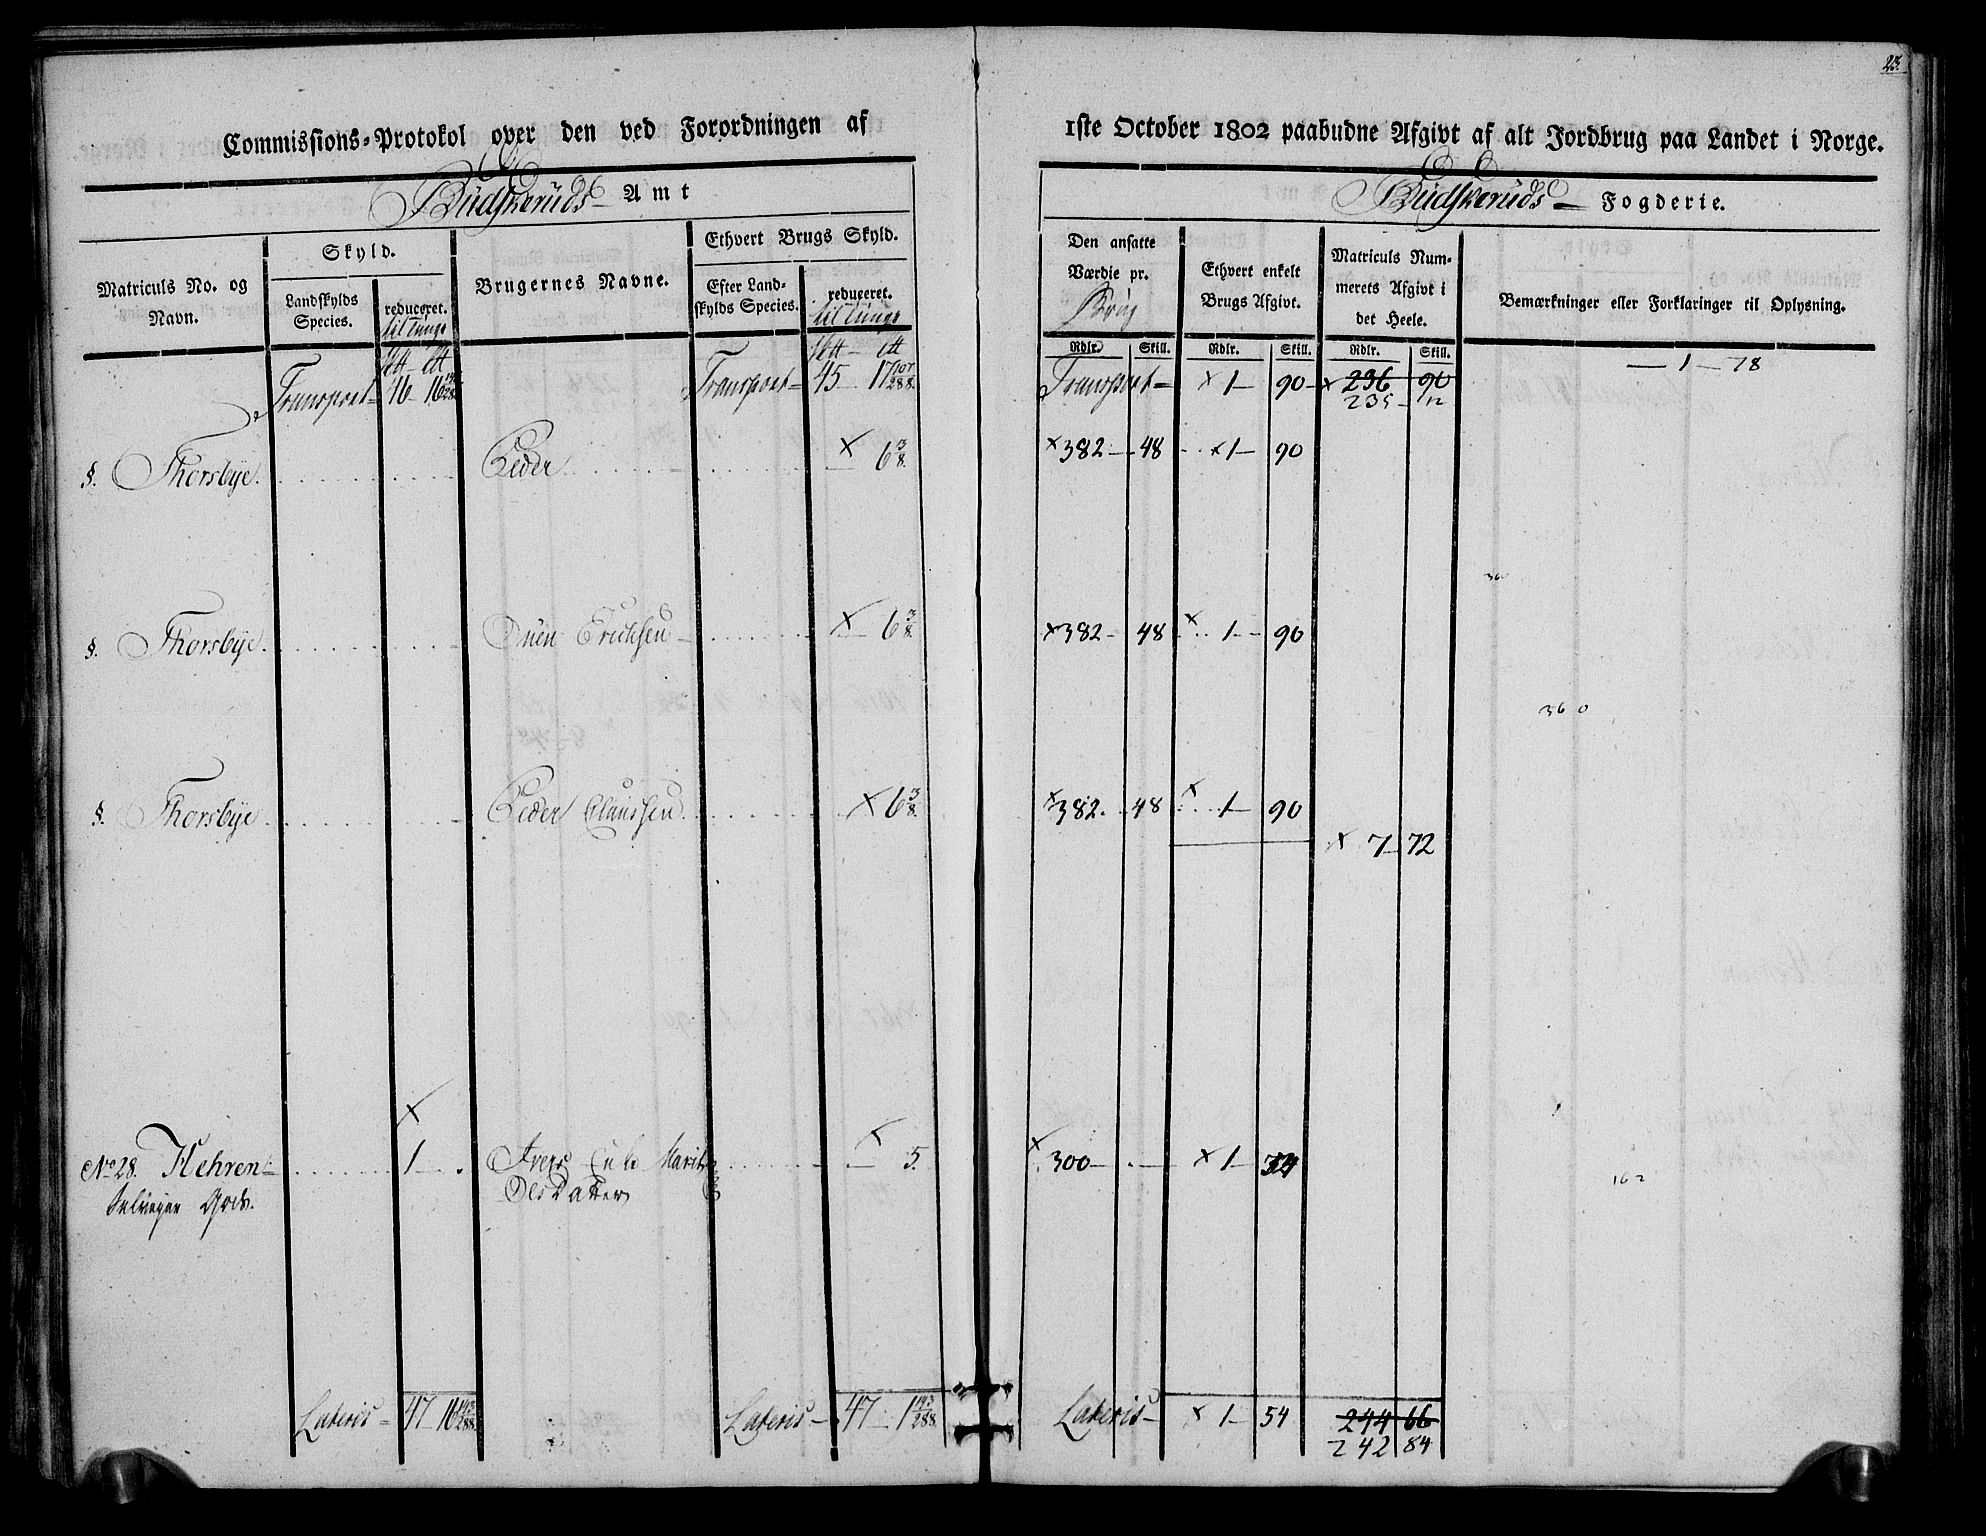 23.
Commissions-Protokol over den ved Forordningen af 1ste October 1802 paabudne Afgivt af alt Jordbrug paa Landet i Norge.
Budskeruds Amt
Budskeruds Fogderie.
Matriculs No. og Navn.
Skyld.
Landskylds Species.
reduceret. til tunge
Brugernes Navne.
Ethvert Brugs Skyld.
Efter Landskylds Species.
reduceret. til tunge
Den ansatte Værdie pr. Brug
Ethvert enkelt Brugs Afgivt.
Matriculs Nummerets Afgivt i det Heele.
Bemærkninger eller Forklaringer til Oplysning.
Rdlr. Skill. Rdlr. Skill. Rdlr. Skill.
Transport 46 16 Transport 45 17 107/288 Transport × 1 90 × 236 90 1 78
235 12
§. Thorsbye Peder × 6 3/8 × 382 48 × 1 90
§. Thorsbye Erichsen × 6 3/8 × 382 48 × 1 90
360
§. Thorsbye Peder Claussen × 6 3/8 × 382 48 × 1 90
× 7 72
×
No 28. Hehren 1 Ivers Enke Marit × 5. × 300 × 1
Selveyer Gods. Olsdatter
162
Lateris 47 16 143/288 Lateris 47 1 143/288 Lateris × 1 54 244 66
242 84